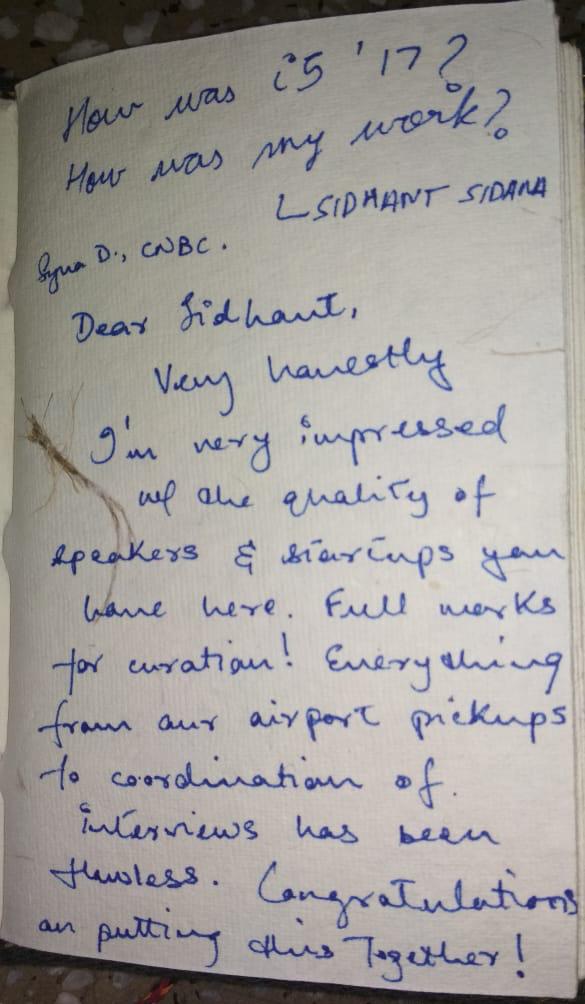 How was i5 '17?
How was my work?
SIDHANT SIDANA
D., CNBC.
Dear Sidhant,
Very honestly
I'm very impressed
w/ the quality of
speakers & startups you
have here. Full marks
for curation! Everything
from our airport pickups
to coordination of
interviews has been
flawless. Congratulations
on putting this together!